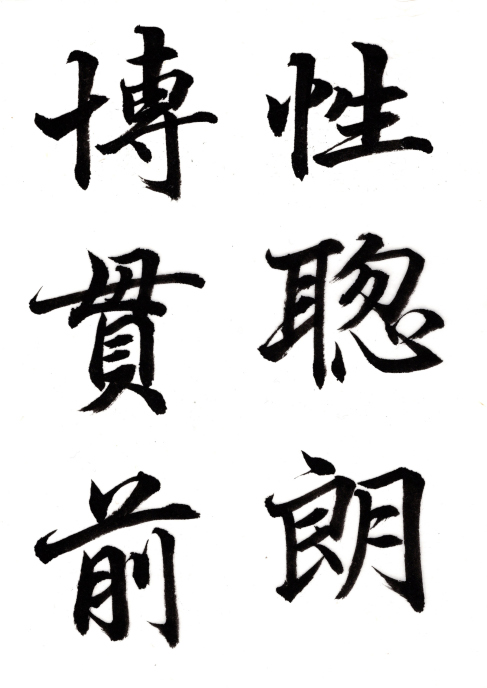 性聦朗
博貫前